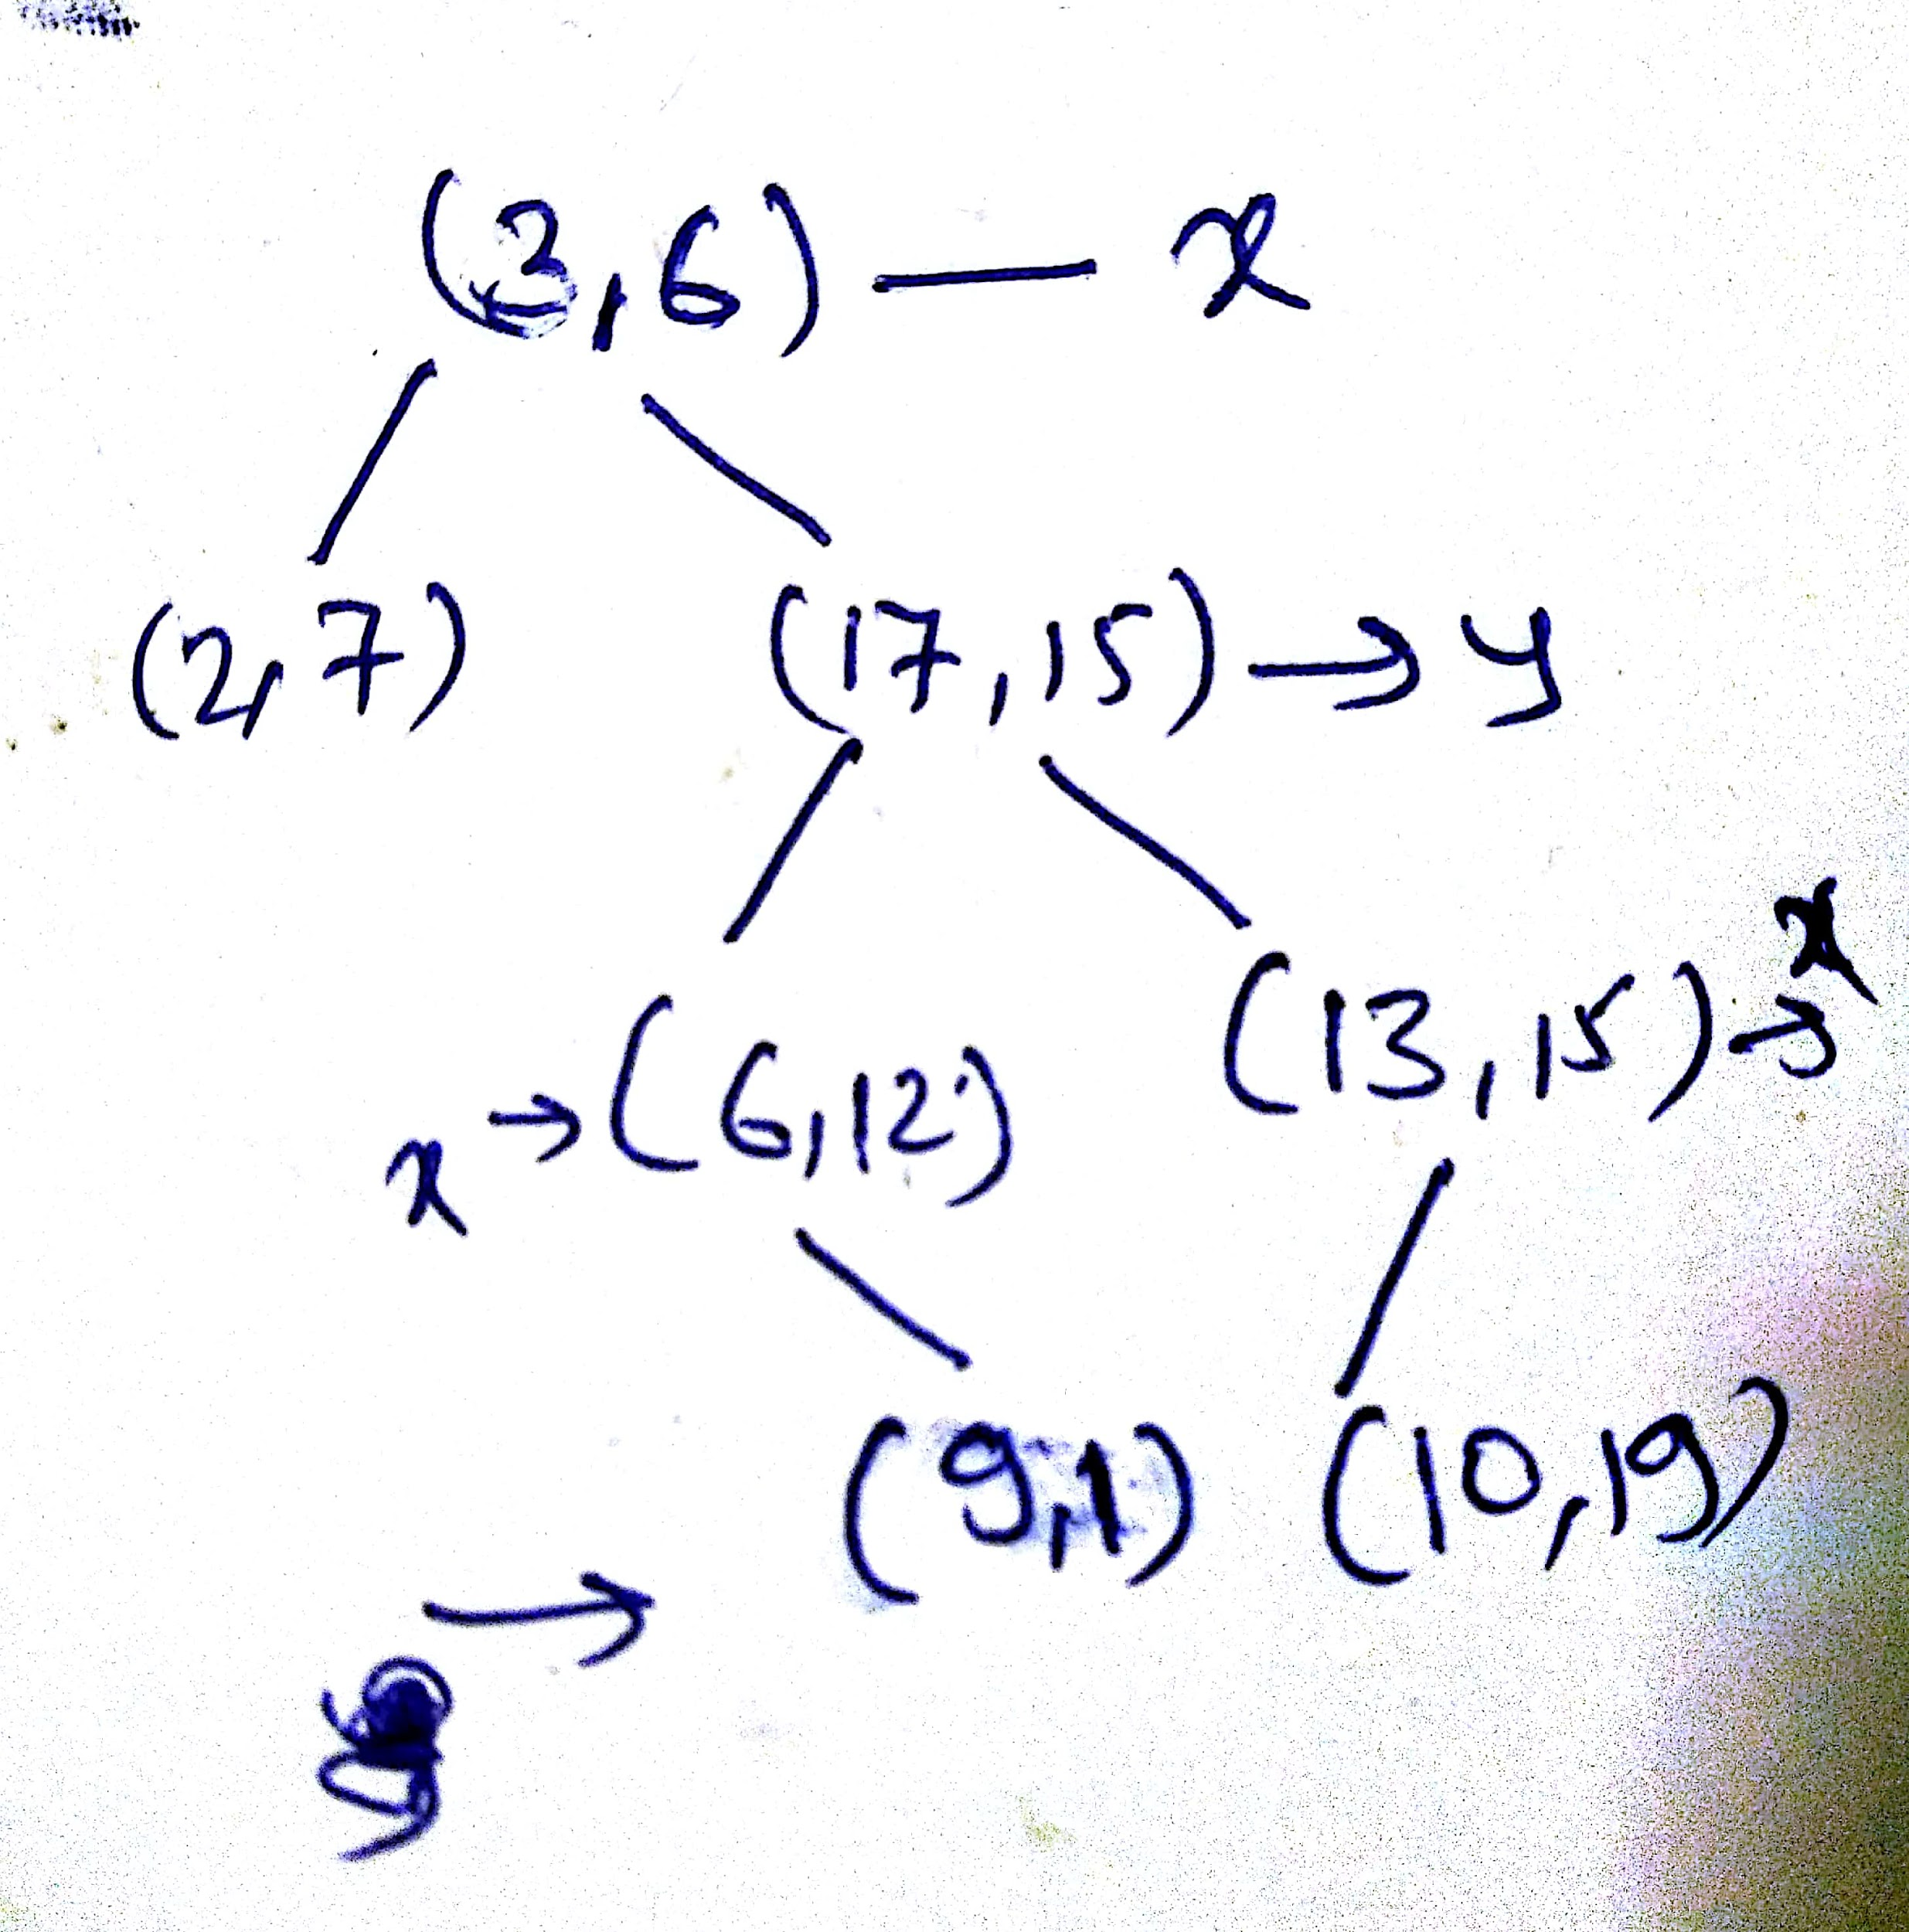 (3,6) — x
(2,7) (17,15) → y
x → (6,12) (13,15) → x
(9,1) (10,19)
→